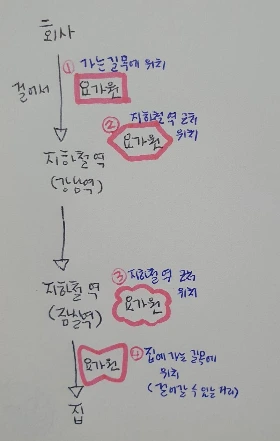 회사
① 가는 길목에 위치
걸어서
요가원
② 지하철역 근처
위치
요가원
지하철역
(강남역)
③ 지하철역 근처
위치
지하철역
요가원
(잠실역)
요가원
④ 집에 가는 길목에
위치
(걸어갈 수 있는 거리)
집